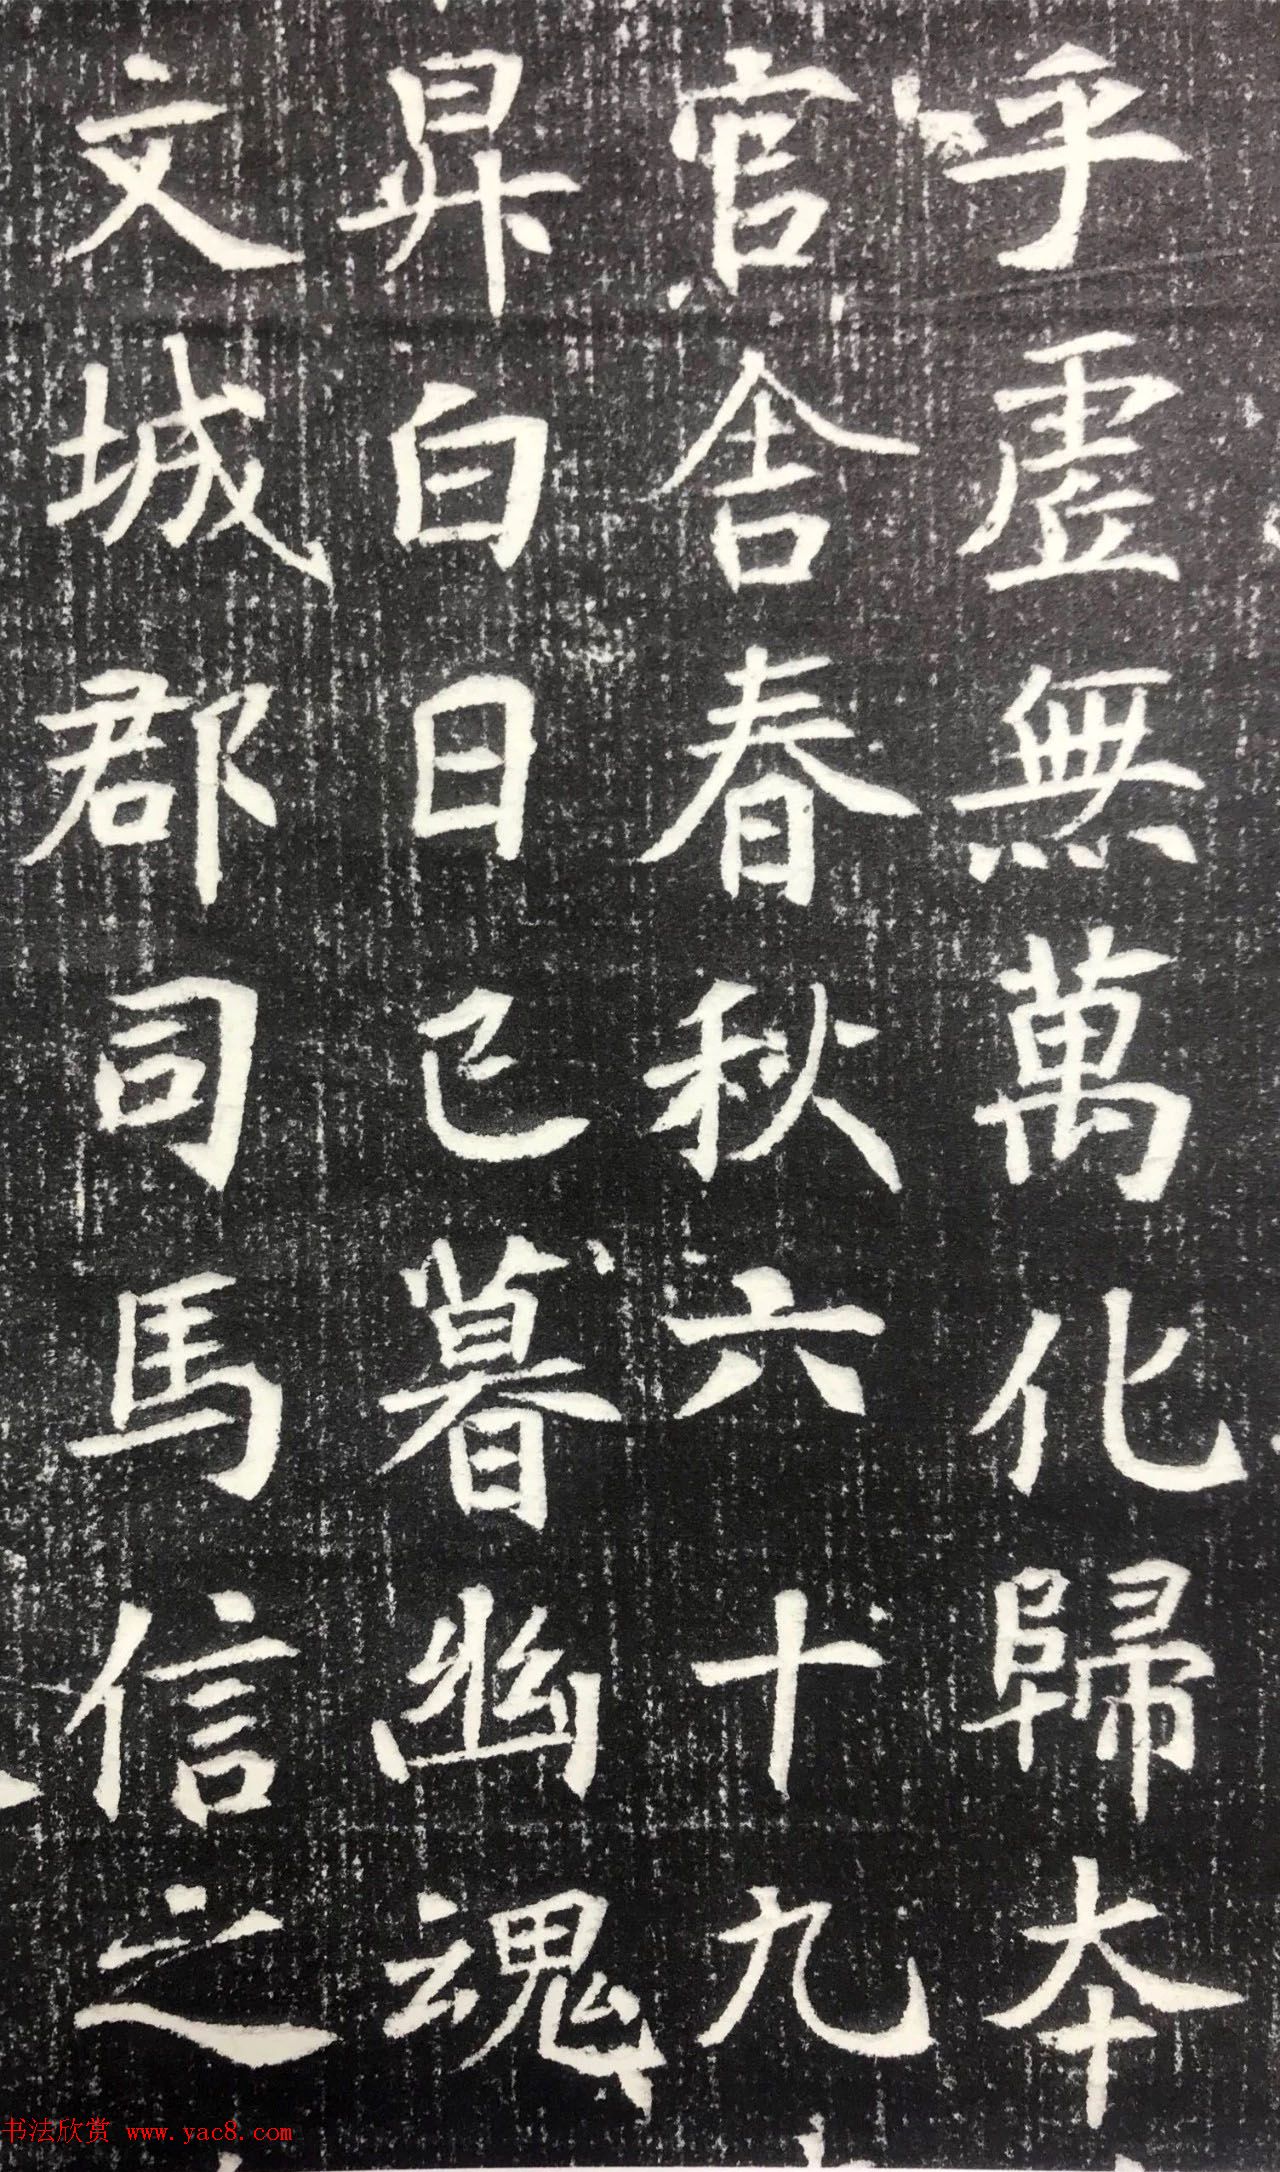 乎虛無萬化歸本
官舍春秋六十九
昇白日已暮幽魂
文城郡司馬信之
书法欣赏 www.yac8.com